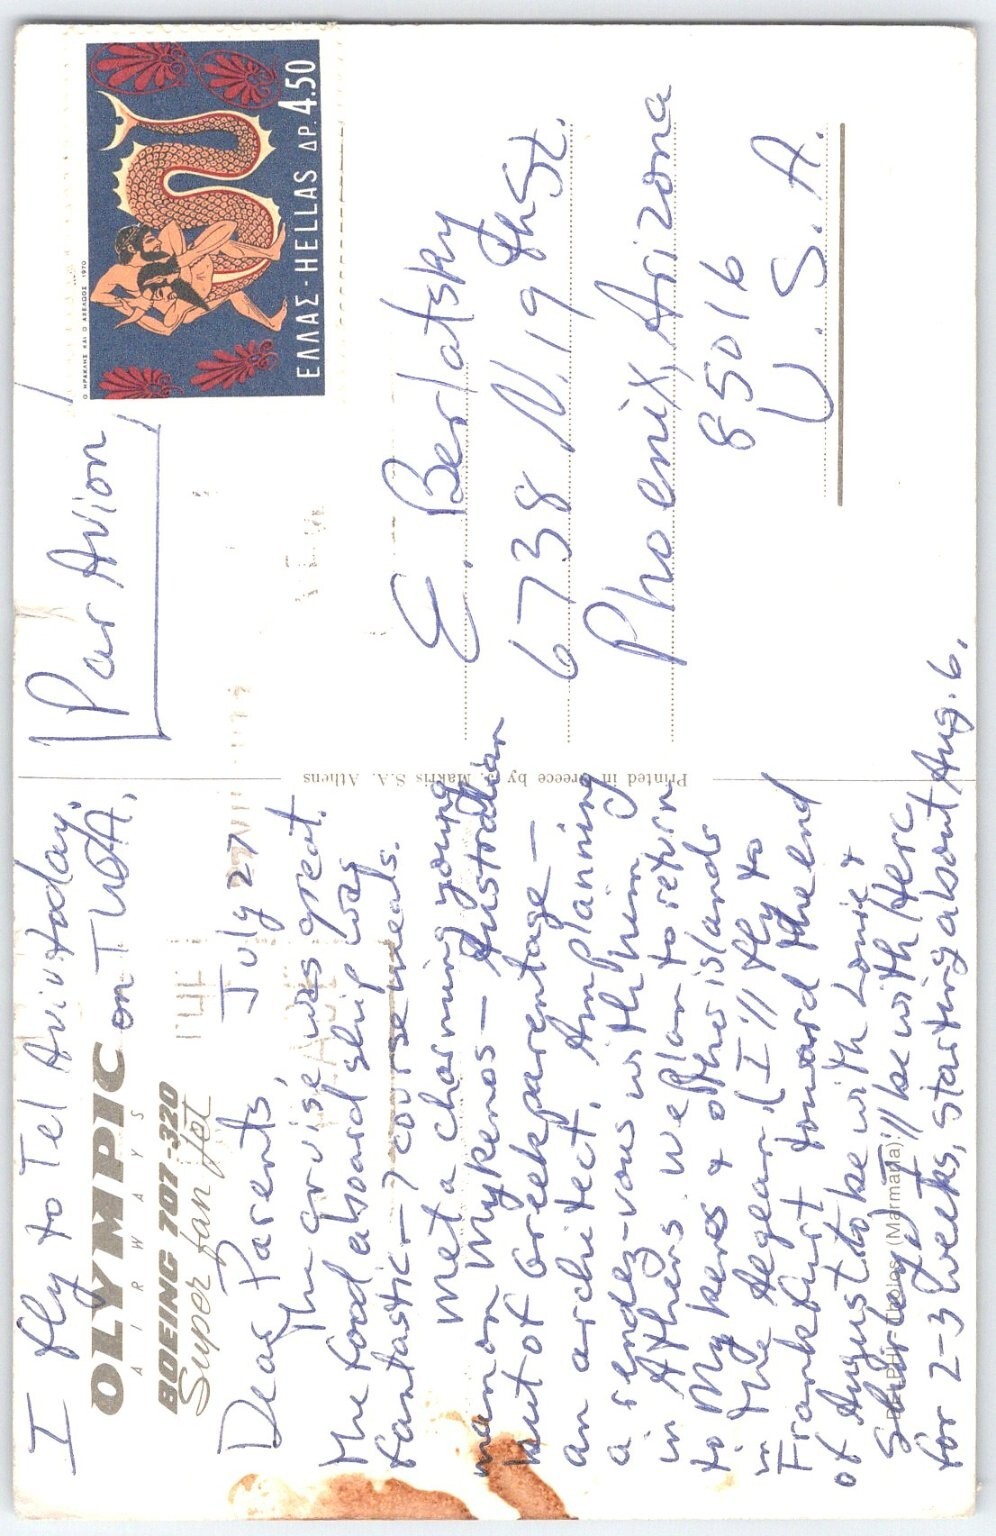 I fly to Tel Aviv today,
on TWA.
OLYMPIC
AIRWAYS
BOEING 707-320
Super fan jet
July 27
Dear Parents,
The cruise was great.
The food aboard ship was
fantastic — 7 course meals.
Met a charming young
man on Mykenos — Australian
but of Greek parentage —
an architect. Am planning
a rendez-vous with him
in Athens. We plan to return
to Mykenos & other islands
in the Aegean. (I'll fly to
Frankfurt toward the end
of August to be with Louie &
Shirley) I'll be with Herc
for 2-3 weeks, starting about Aug. 6.
DELPHI: Tholos (Marmaria)
Printed in Greece by Makris S.A. Athens
Par Avion
Ο ΗΡΑΚΛΗΣ ΚΑΙ Ο ΑΧΕΛΩΟΣ 1970
ΕΛΛΑΣ-HELLAS ΔΡ. 4.50
E. Berlatsky
6738 N. 19th St.
Phoenix, Arizona
85016
U.S.A.